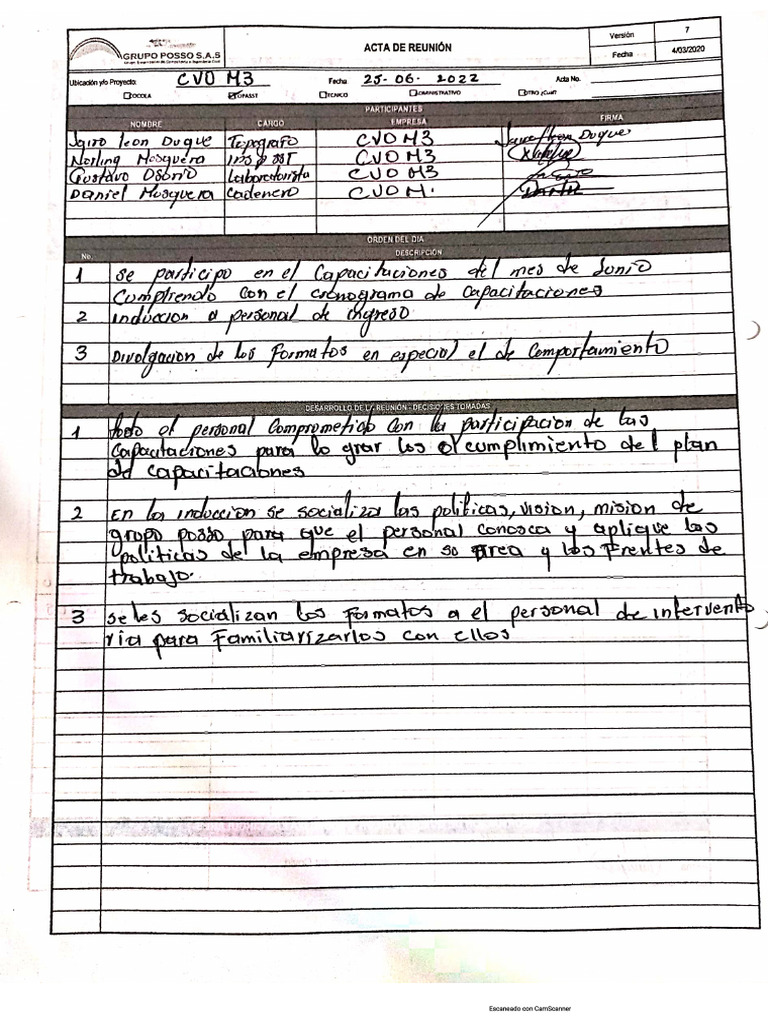 GRUPO POSSO S.A.S
ACTA DE REUNIÓN
Versión 7
Fecha 4/03/2020
Ubicación y/o Proyecto: CVO M3 Fecha 25-06-2022 Acta No.
COCOLA COPASST TECNICO ADMINISTRATIVO OTRO ¿Cuál?
PARTICIPANTES
NOMBRE CARGO EMPRESA FIRMA
Jairo Leon Duque Topografo CVO M3 Jairo Leon Duque
Norling Mosquera Insp SST CVO M3
Gustavo Osorio Laboratorista CVO M3
Daniel Mosquera Cadenero CVO M.
ORDEN DEL DIA
No. DESCRIPCIÓN
1 se participo en el Capacitaciones del mes de Junio
Cumpliendo con el cronograma de Capacitaciones
2 induccion a personal de ingreso
3 Divulgacion de los formatos en especial el de Comportamiento
DESARROLLO DE LA REUNIÓN - DECISIONES TOMADAS
1 todo el personal Comprometido con la participacion de las
Capacitaciones para lo grar los el cumplimiento del plan
de capacitaciones
2 En la induccion se socializa las politicas, vision, mision de
grupo posso, para que el personal conosca y aplique las
politicas de la empresa en so area y los Frentes de
trabajo.
3 se les socializan los formatos a el personal de intervento
ria para Familiarizarlos con ellos
Escaneado con CamScanner